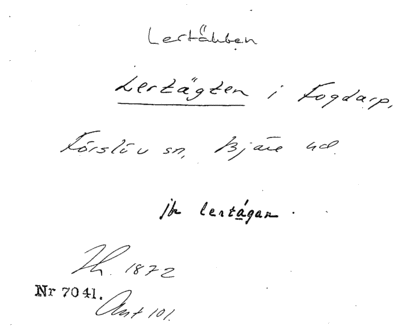 Lertäkten
Lertägten i Fogdarp,
Förslöv sn, Bjäre hd.
jfr lertagan.
Th. 1872
Nr 7041.
Ant 101.